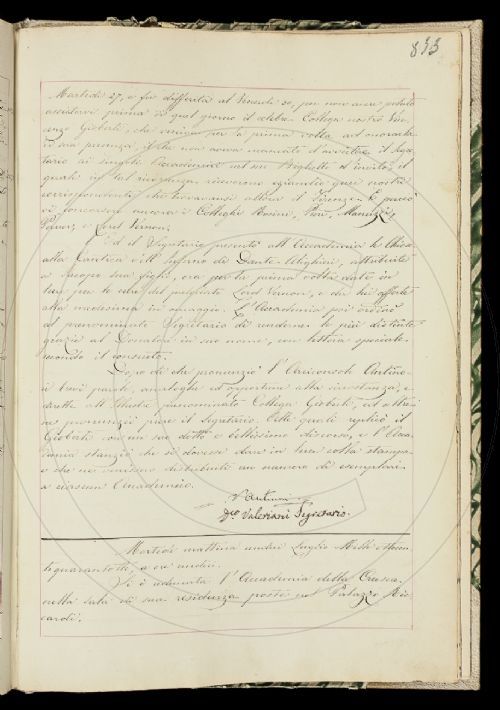 833
Martedì 27, e fu differita al Venerdì 30, per non aver potuto
assistervi prima di quel giorno il celebre Collega nostro Vin-
cenzo Gioberti, che veniva per la prima volta ad onorarla
di sua presenza, il che non aveva mancato d'avvertire il Segre-
tario ai singoli Accademici nel suo Biglietto d'invito; il
quale in tal circostanza riceverono eziandio quei nostri
corrispondenti che trovavansi allora in Firenze, e perciò
vi concorsero ancora i Colleghi Rosini, Manuzzi,
e Lord Vernon.
Ed il Segretario presentò all'Accademia le Chiose
alla Cantica dell'Inferno di Dante Alighieri, attribuite
a Jacopo suo figlio, ora per la prima volta date in
luce per le cure del prelodato Lord Vernon, e da lui offerte
alla medesima in omaggio. L'Accademia poi ordinò
al prenominato Segretario di renderne le più distinte
grazie al Donatore in suo nome, con lettera speciale,
secondo il consueto.
Dopo di che pronunziò l'Arciconsolo
brevi parole, analoghe ed opportune alla circostanza, e
dirette all'illustre prenominato Collega Gioberti, ed altre
ne pronunziò pure il Segretario. Alle quali replicò il
Gioberti con un suo dotto e bellissimo discorso, e l'Acca-
demia stanziò che si dovessi dare in luce colla stampa,
e che ne venissero distribuiti un numero di esemplari
a ciascun Accademico.
Valeriani Segretario.
Martedì mattina undici Luglio Mille ottocen-
toquarantotto, a ore undici.
Si è adunata l'Accademia della Crusca
nella sala di sua residenza posta nel Palazzo Ric-
cardi.